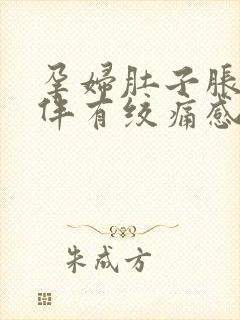 孕婦肚子脹
伴有绞痛感
朱成方